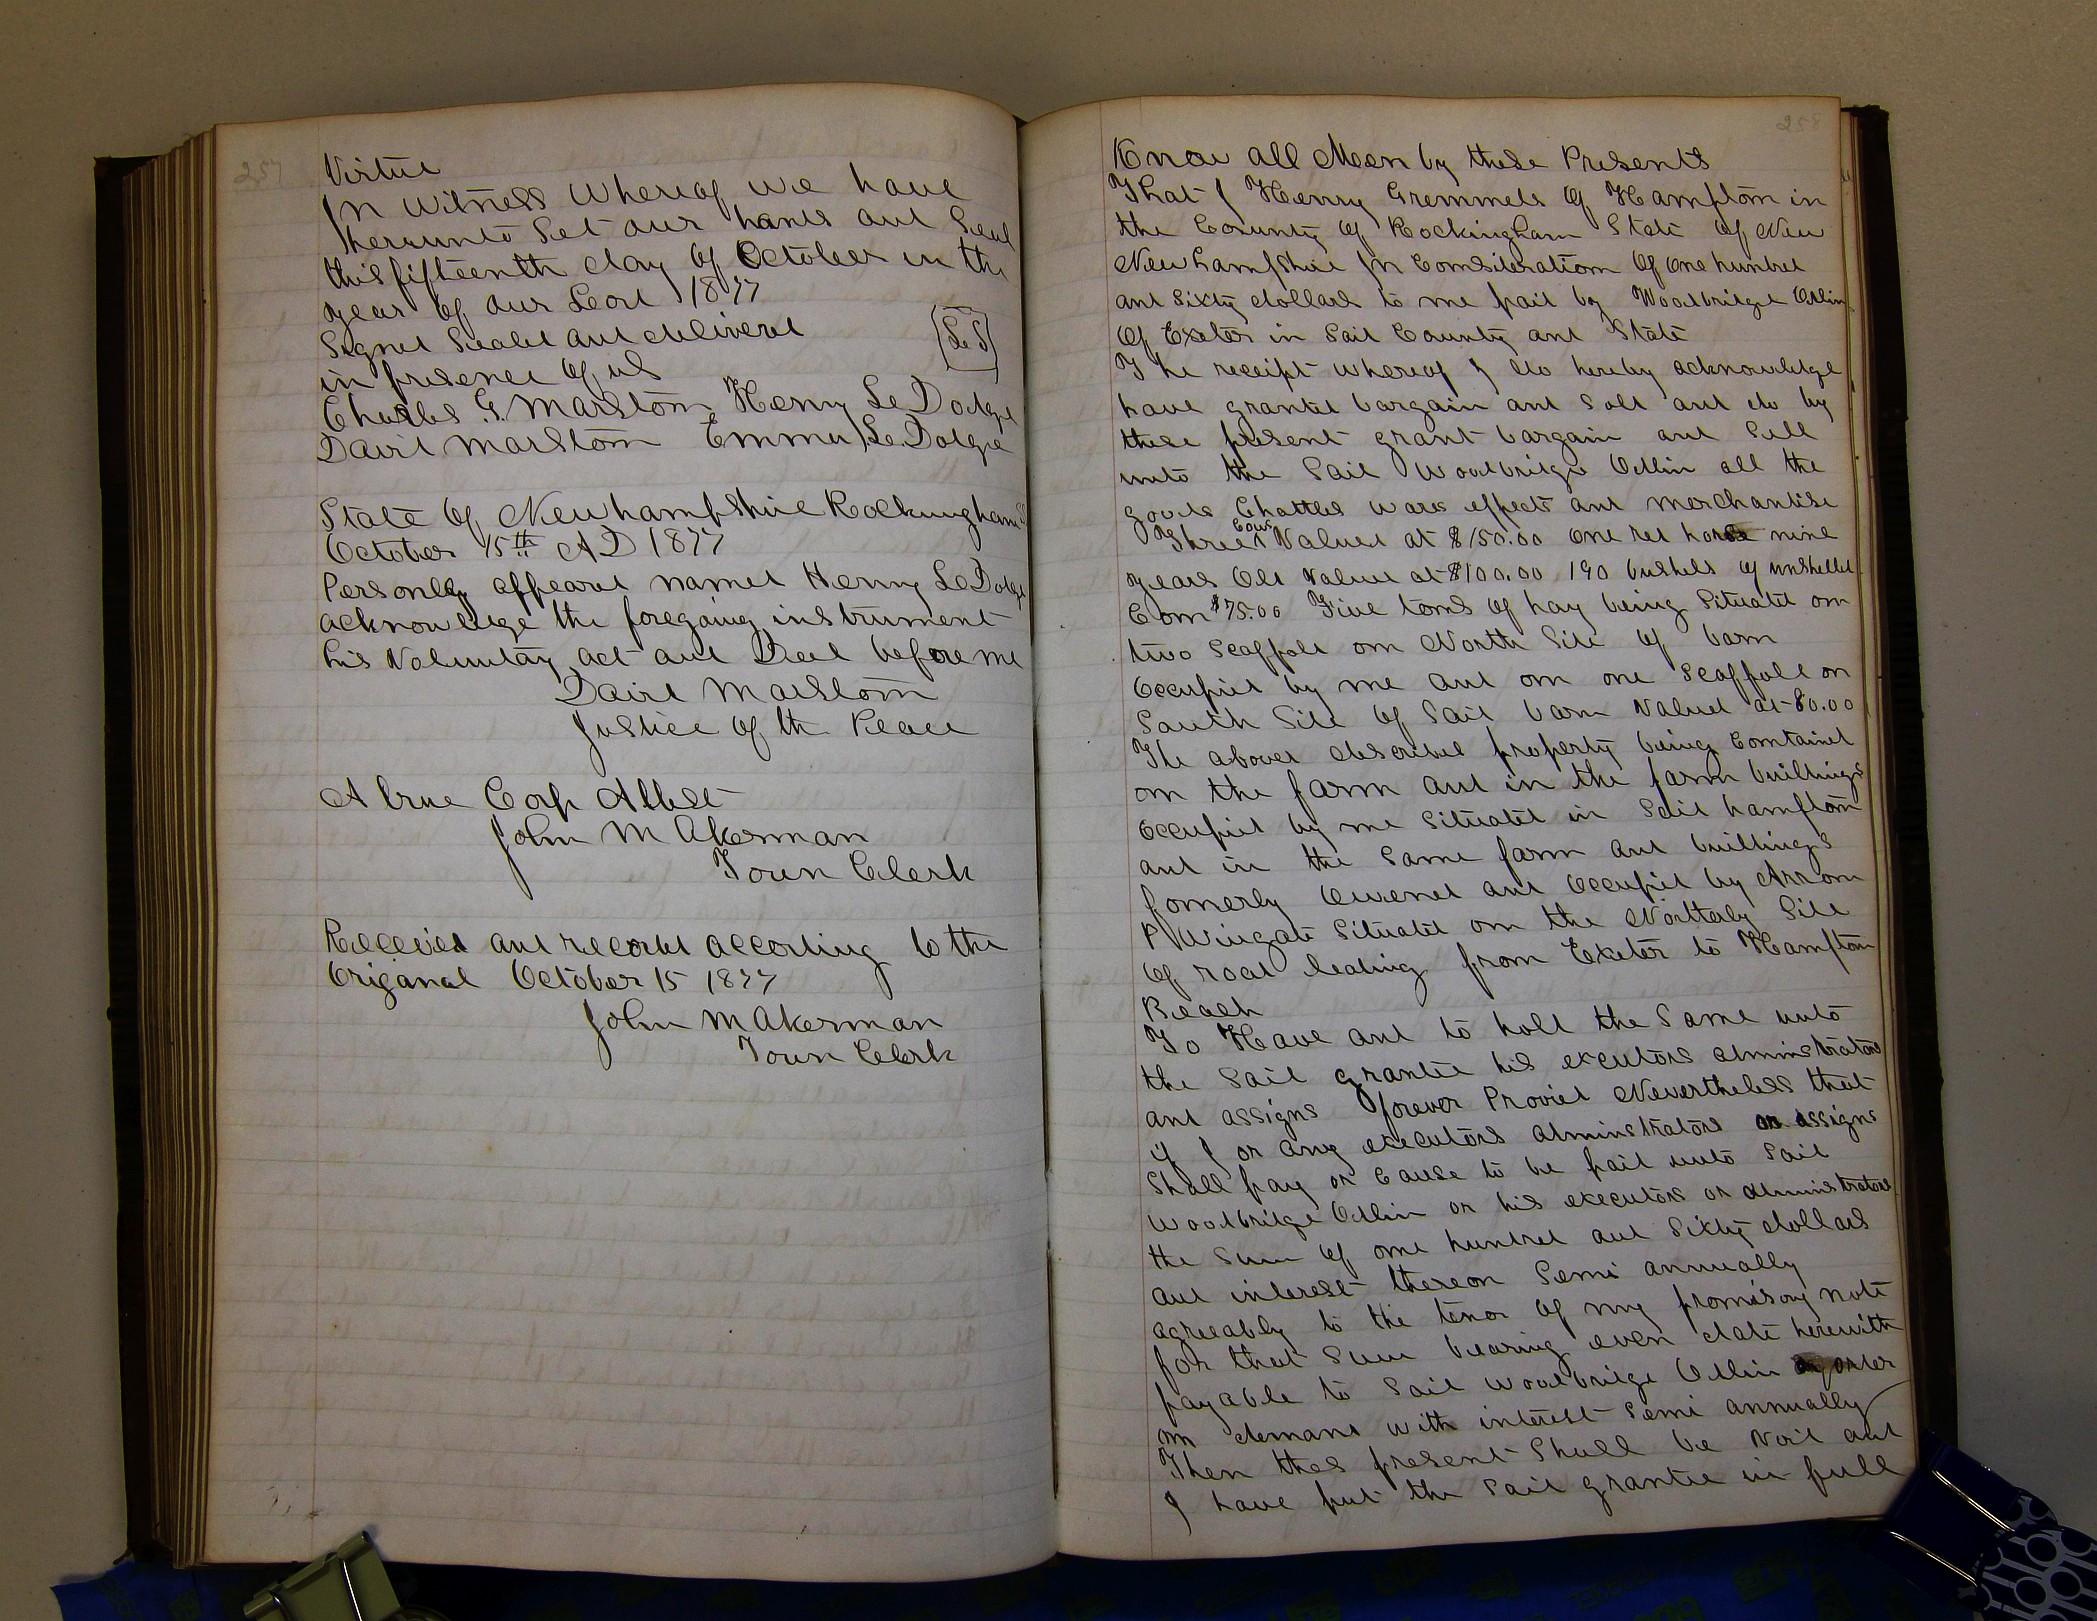 257
Virtue
In witness whereof we have
hereunto Set our hands and Seal
this fifteenth day of October in the
year of our Lord 1877
Signed Sealed and delivered
in presence of us
(L S)
Charles G. Marston Henry L. Dodge
David Marston Emma L. Dodge
State of Newhampshire Rockingham SS
October 15th AD 1877
Personly appeared named Henry L Dodge
acknowledge the foregoing instrument
his Voluntay act and Deed before me
David Marston
Justice of th Peace
A true Copy Attest
John M Akerman
Town Clerk
Received and recorded according to the
Origanal October 15 1877
John M Akerman
Town Clerk
258
Know all Meen by these Presents
That I Henry Gremmels of Hampton in
the County of Rockingham State of New
Newhampshire In Consideration of one hundred
and Sixty dollars to me paid by Woodbridge Odlin
of Exeter in Said County and State
The receipt whereof I do hereby acknowledge
have granted bargain and Sold and do by
these present grant bargain and Sell
unto the Said Woodbridge Odlin all the
goods Chattles wars effects and merchandise
Three Cows Valued at $150.00 one red horse nine
years Old Valued at $100.00 190 bushels of unshelled
Corn $75.00 Five tons of hay being Situated on
two Scaffold on North Side of barn
Occupied by me and on one Scaffold on
South Side of Said barn Valued at 80.00
The above described property being Contained
on the farm and in the farm buildings
occupied by me Situated in Said hampton
and in the Same farm and buildings
fomerly Owened and Occupied by Arron
P Wingate Situated on the Northerly Side
of road leading from Exeter to Hampton
Beach
To Have and to hold the Same unto
the Said grantee his executors adminstrators
and assigns forever Provied Nevertheless that
if I or any executors adminstrators or assigns
Shall pay or Cause to be paid unto Said
Woodbridge Odlin or his executors or adminstrators
the Sum of one hundred and Sixty dollars
and interest thereon Semi annually
agreeably to the tenor of my promisory note
for that Sum bearing even date herewith
payable to Said Woodbridge Odlin or order
on demand with interest Semi annually
Then thes present Shall be Void and
I have put the Said grantee in full